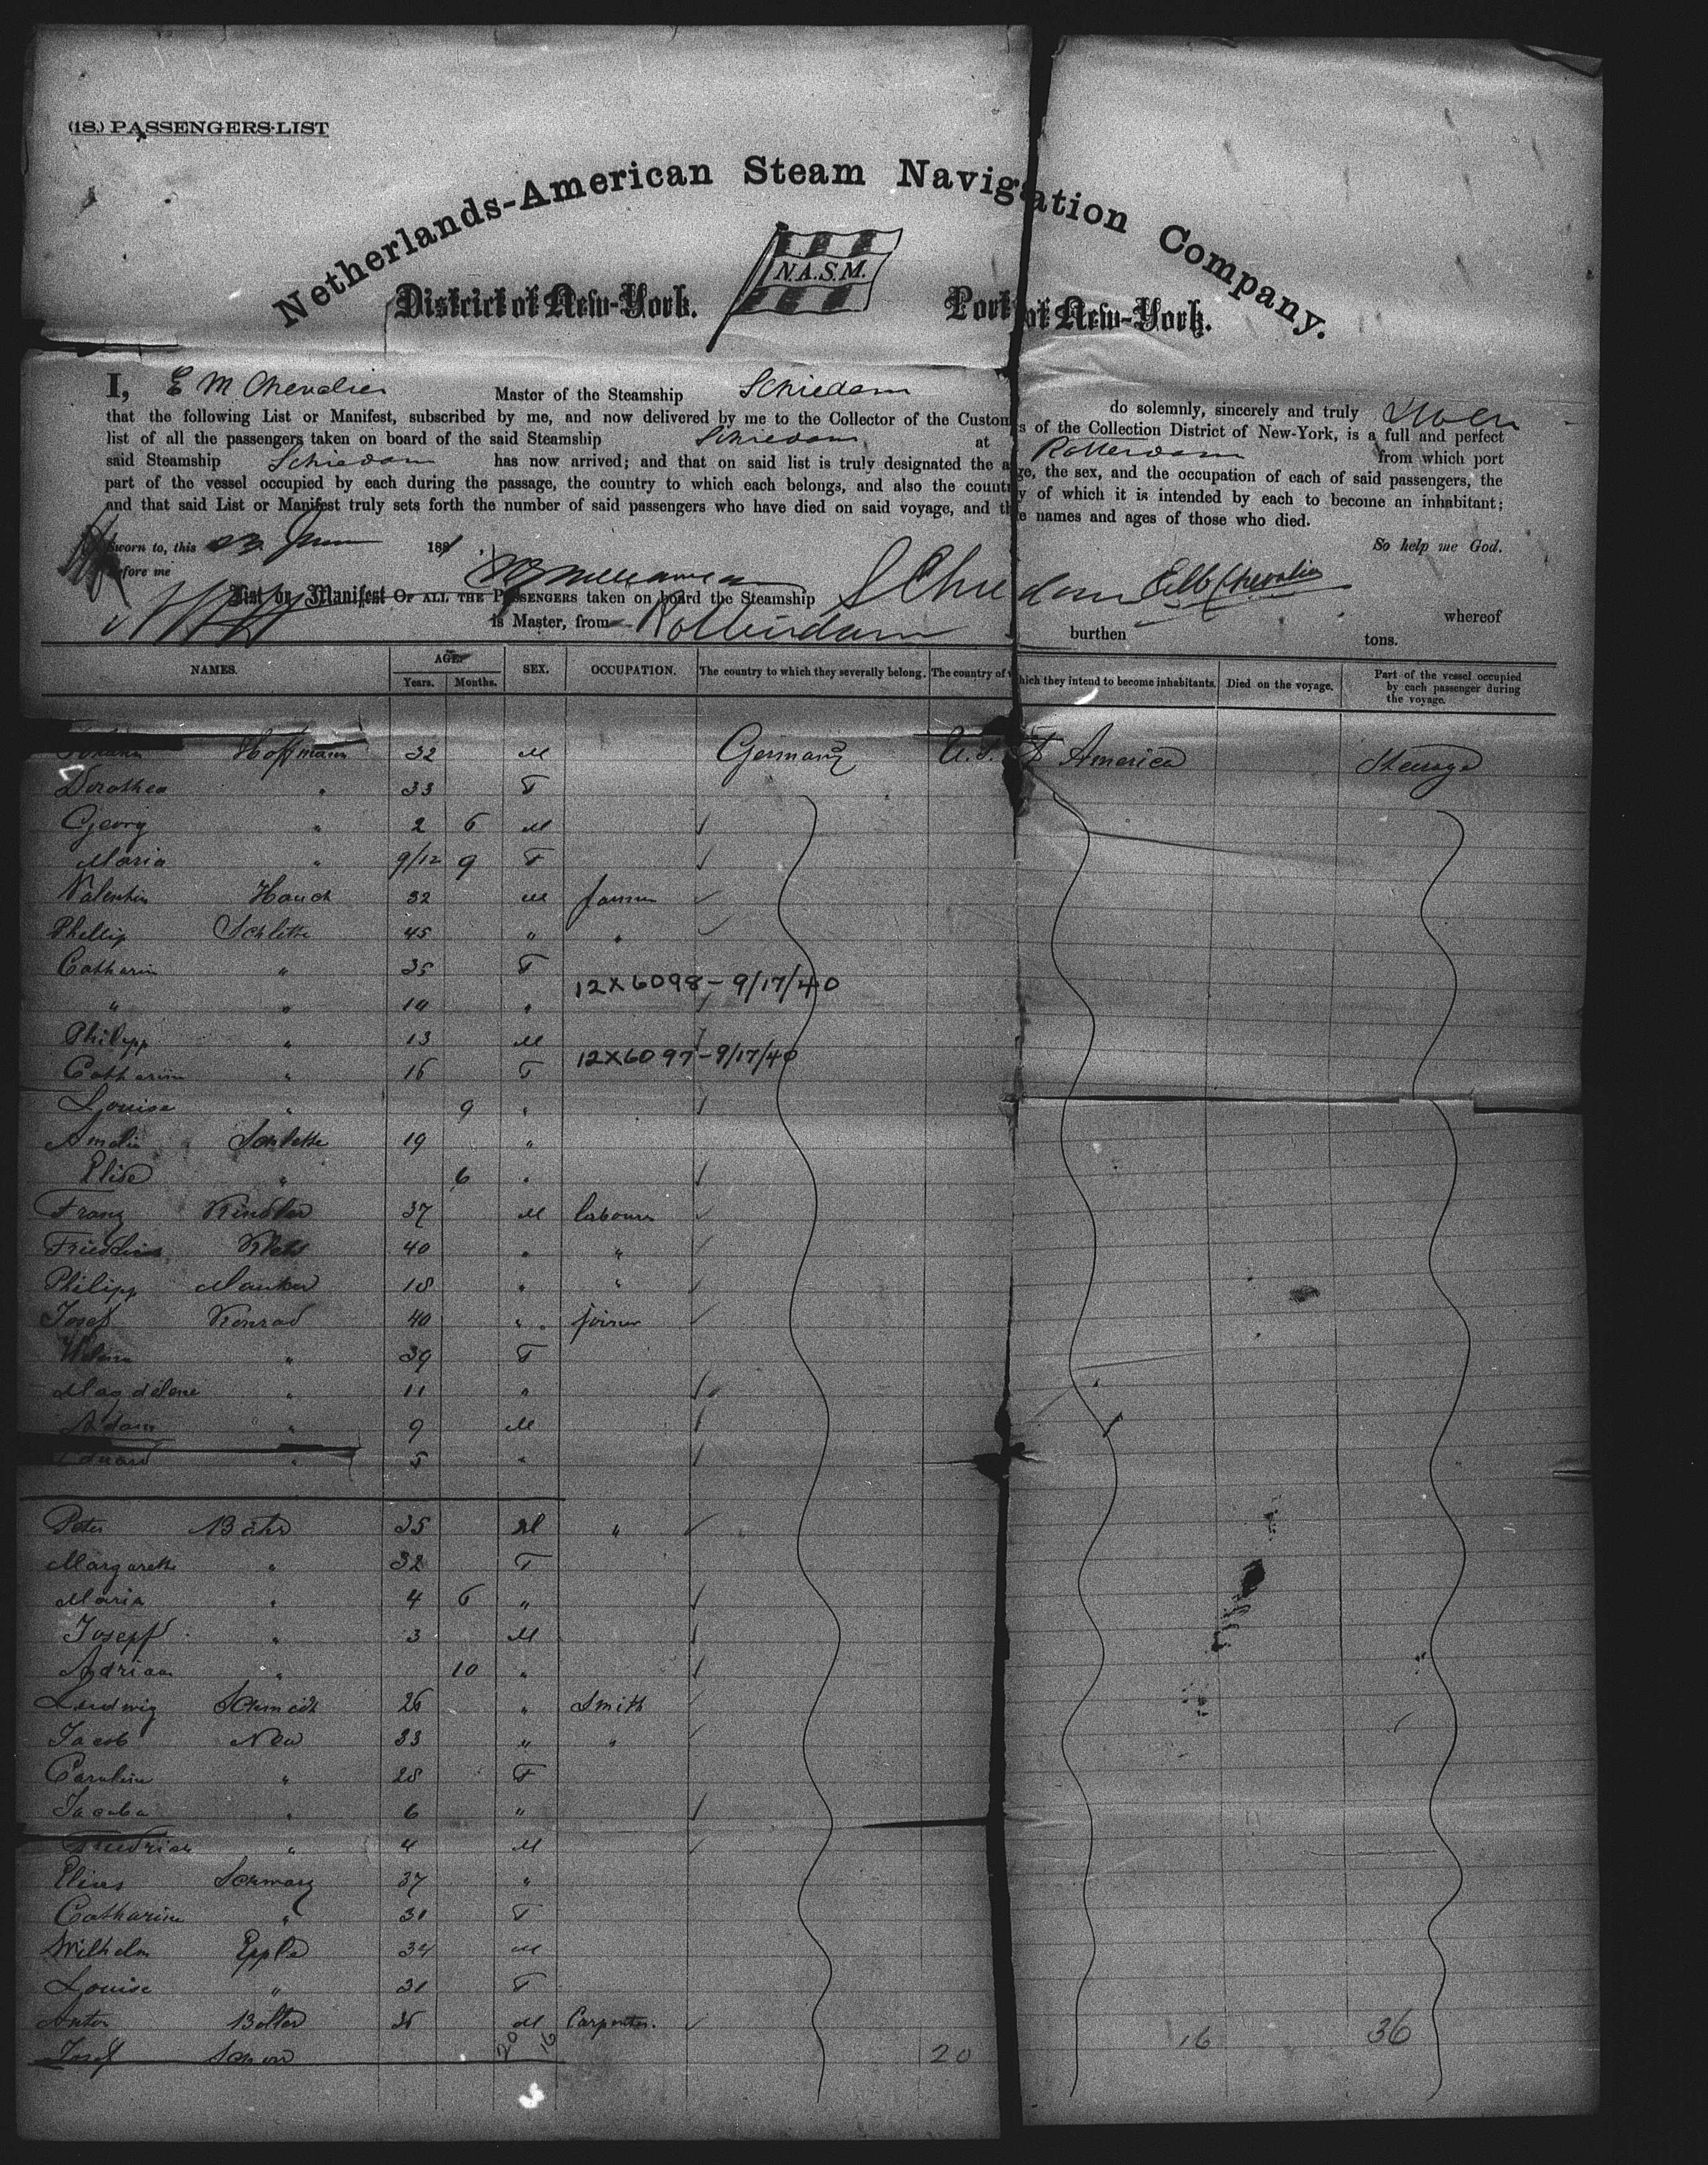 (18.) PASSENGERS-LIST
Netherlands-American Steam Navigation Company.
N.A.S.M.
District of New-York. Port of New-York.
I, E M Chevalier Master of the Steamship Schiedam do solemnly, sincerely and truly
that the following List or Manifest, subscribed by me, and now delivered by me to the Collector of the Customs of the Collection District of New-York, is a full and perfect
list of all the passengers taken on board of the said Steamship Schiedam at Rotterdam from which port
said Steamship Schiedam has now arrived; and that on said list is truly designated the age, the sex, and the occupation of each of said passengers, the
part of the vessel occupied by each during the passage, the country to which each belongs, and also the country of which it is intended by each to become an inhabitant;
and that said List or Manifest truly sets forth the number of said passengers who have died on said voyage, and the names and ages of those who died.
So help me God.
Sworn to, this 23 June 1881
before me
List or Manifest OF ALL THE PASSENGERS taken on board the Steamship Schiedam E M Chevalier whereof
is Master, from Rotterdam burthen tons.
NAMES. AGE. SEX. OCCUPATION. The country to which they severally belong. The country of which they intend to become inhabitants. Died on the voyage. Part of the vessel occupied by each passenger during the voyage.
Years. Months.
Johann Hoffmann 32 M Germany U.S. of America Steerage
Dorothea " 33 F
Georg " 2 6 M
Maria " 9/12 9 F
Valentin Hauch 32 M farmer
Phillip Schlette 45 " "
Catharin " 35 F
12X6098-9/17/40
" " 10 "
Philipp " 13 M
12X6097-9/17/40
Catharine " 16 F
Louise " 9 "
Amalie Schlette 19 "
Elise " 6 "
Franz Kindler 37 M labourer
40 " "
Philipp 18 " "
Josef Konrad 40 " joiner
39 F
Magdalene " 11 "
Adam " 9 M
Eduard " 5 "
Peter Bähr 35 M "
Margareth " 32 F
Maria " 4 6 "
Josepf " 3 M
Adrian " 10 "
Ludwig Schmidt 26 " Smith
Jacob New 33 " "
Caroline " 28 F
Jacoba " 6 "
Friedrich " 4 M
Elias Schwarz 37 "
Catharine " 31 F
Wilhelm Epple 34 M
Louise " 31 F
Anton Bolter 36 M Carpenter.
Josef
20 16
20 16 36